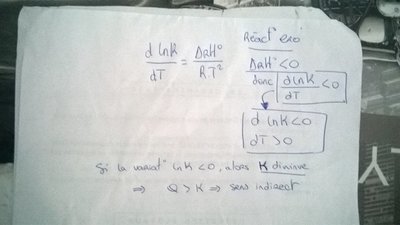 d lnK / dT = ΔrH° / RT²
Réact° exo
ΔrH° < 0
donc d lnK / dT < 0
d lnK < 0
dT > 0
Si la variat° lnK < 0, alors K diminue
⇒ Q > K ⇒ sens indirect